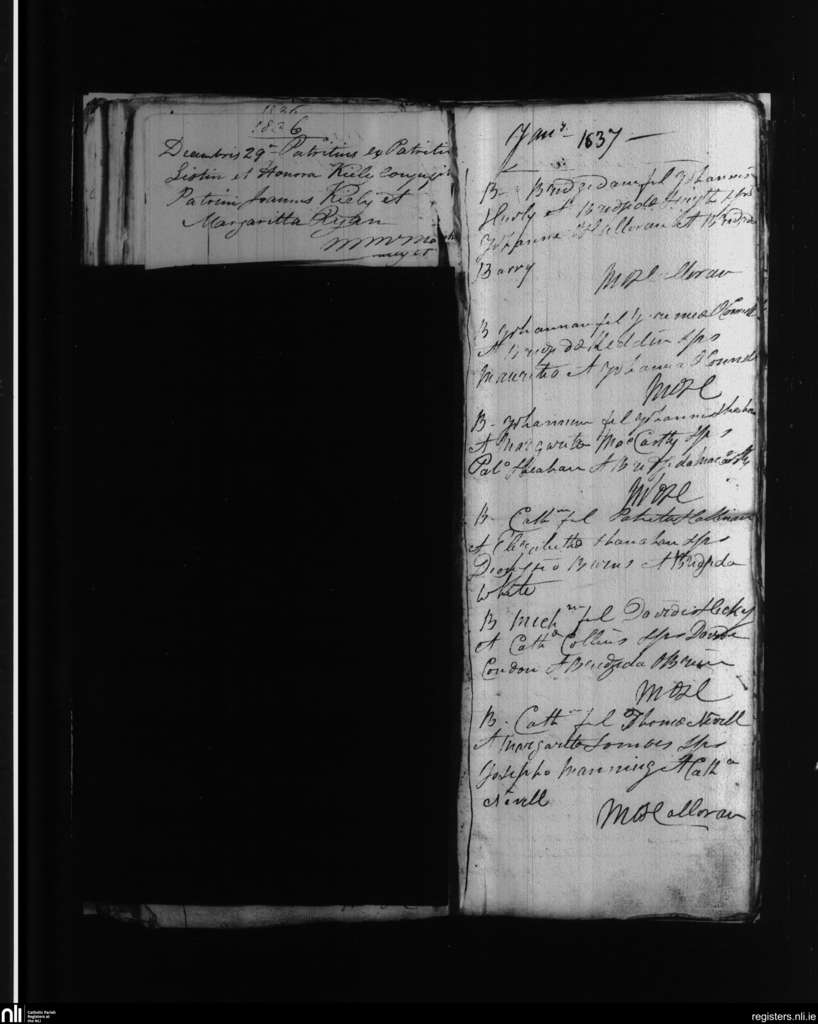 1836
1836
Decembris 29ª Patritius ex Patritio
Listin et Honora Kiely conjugi
Patrini Joannes Kiely et
Margaritta Ryan
Janʸ 1837 —
B - Bridgedam fil Johannis
Hurly et Bridgida Smyth sps
Johanne OHalloran et Bridgida
Barry
MOHalloran
B Johannam fil Jeremiæ OConnell
et Bridgidæ Heddin sps
Mauritio et Johanna OConnell
MOH
B - Johannem fil Johannis Sheahan
et Margarita MacCarthy sps
Patº Sheahan et Bridgida MacCarthy
MOH
B - Cathᵐ fil Patritii Hallinan
et Elizabetha Shanahan sps
Dionysio Burns et Bridgida
White
B Michᵐ fil Davidis Hicky
et Cathª Collins sps Davide
Condon et Bridgida OBrien
MOH
B - Cathᵐ fil Thomæ Nevill
et Margarita Somers sps
Josepho Manning et Cathª
Nevill
MOHalloran
nli
Catholic Parish
Registers at
the NLI
registers.nli.ie